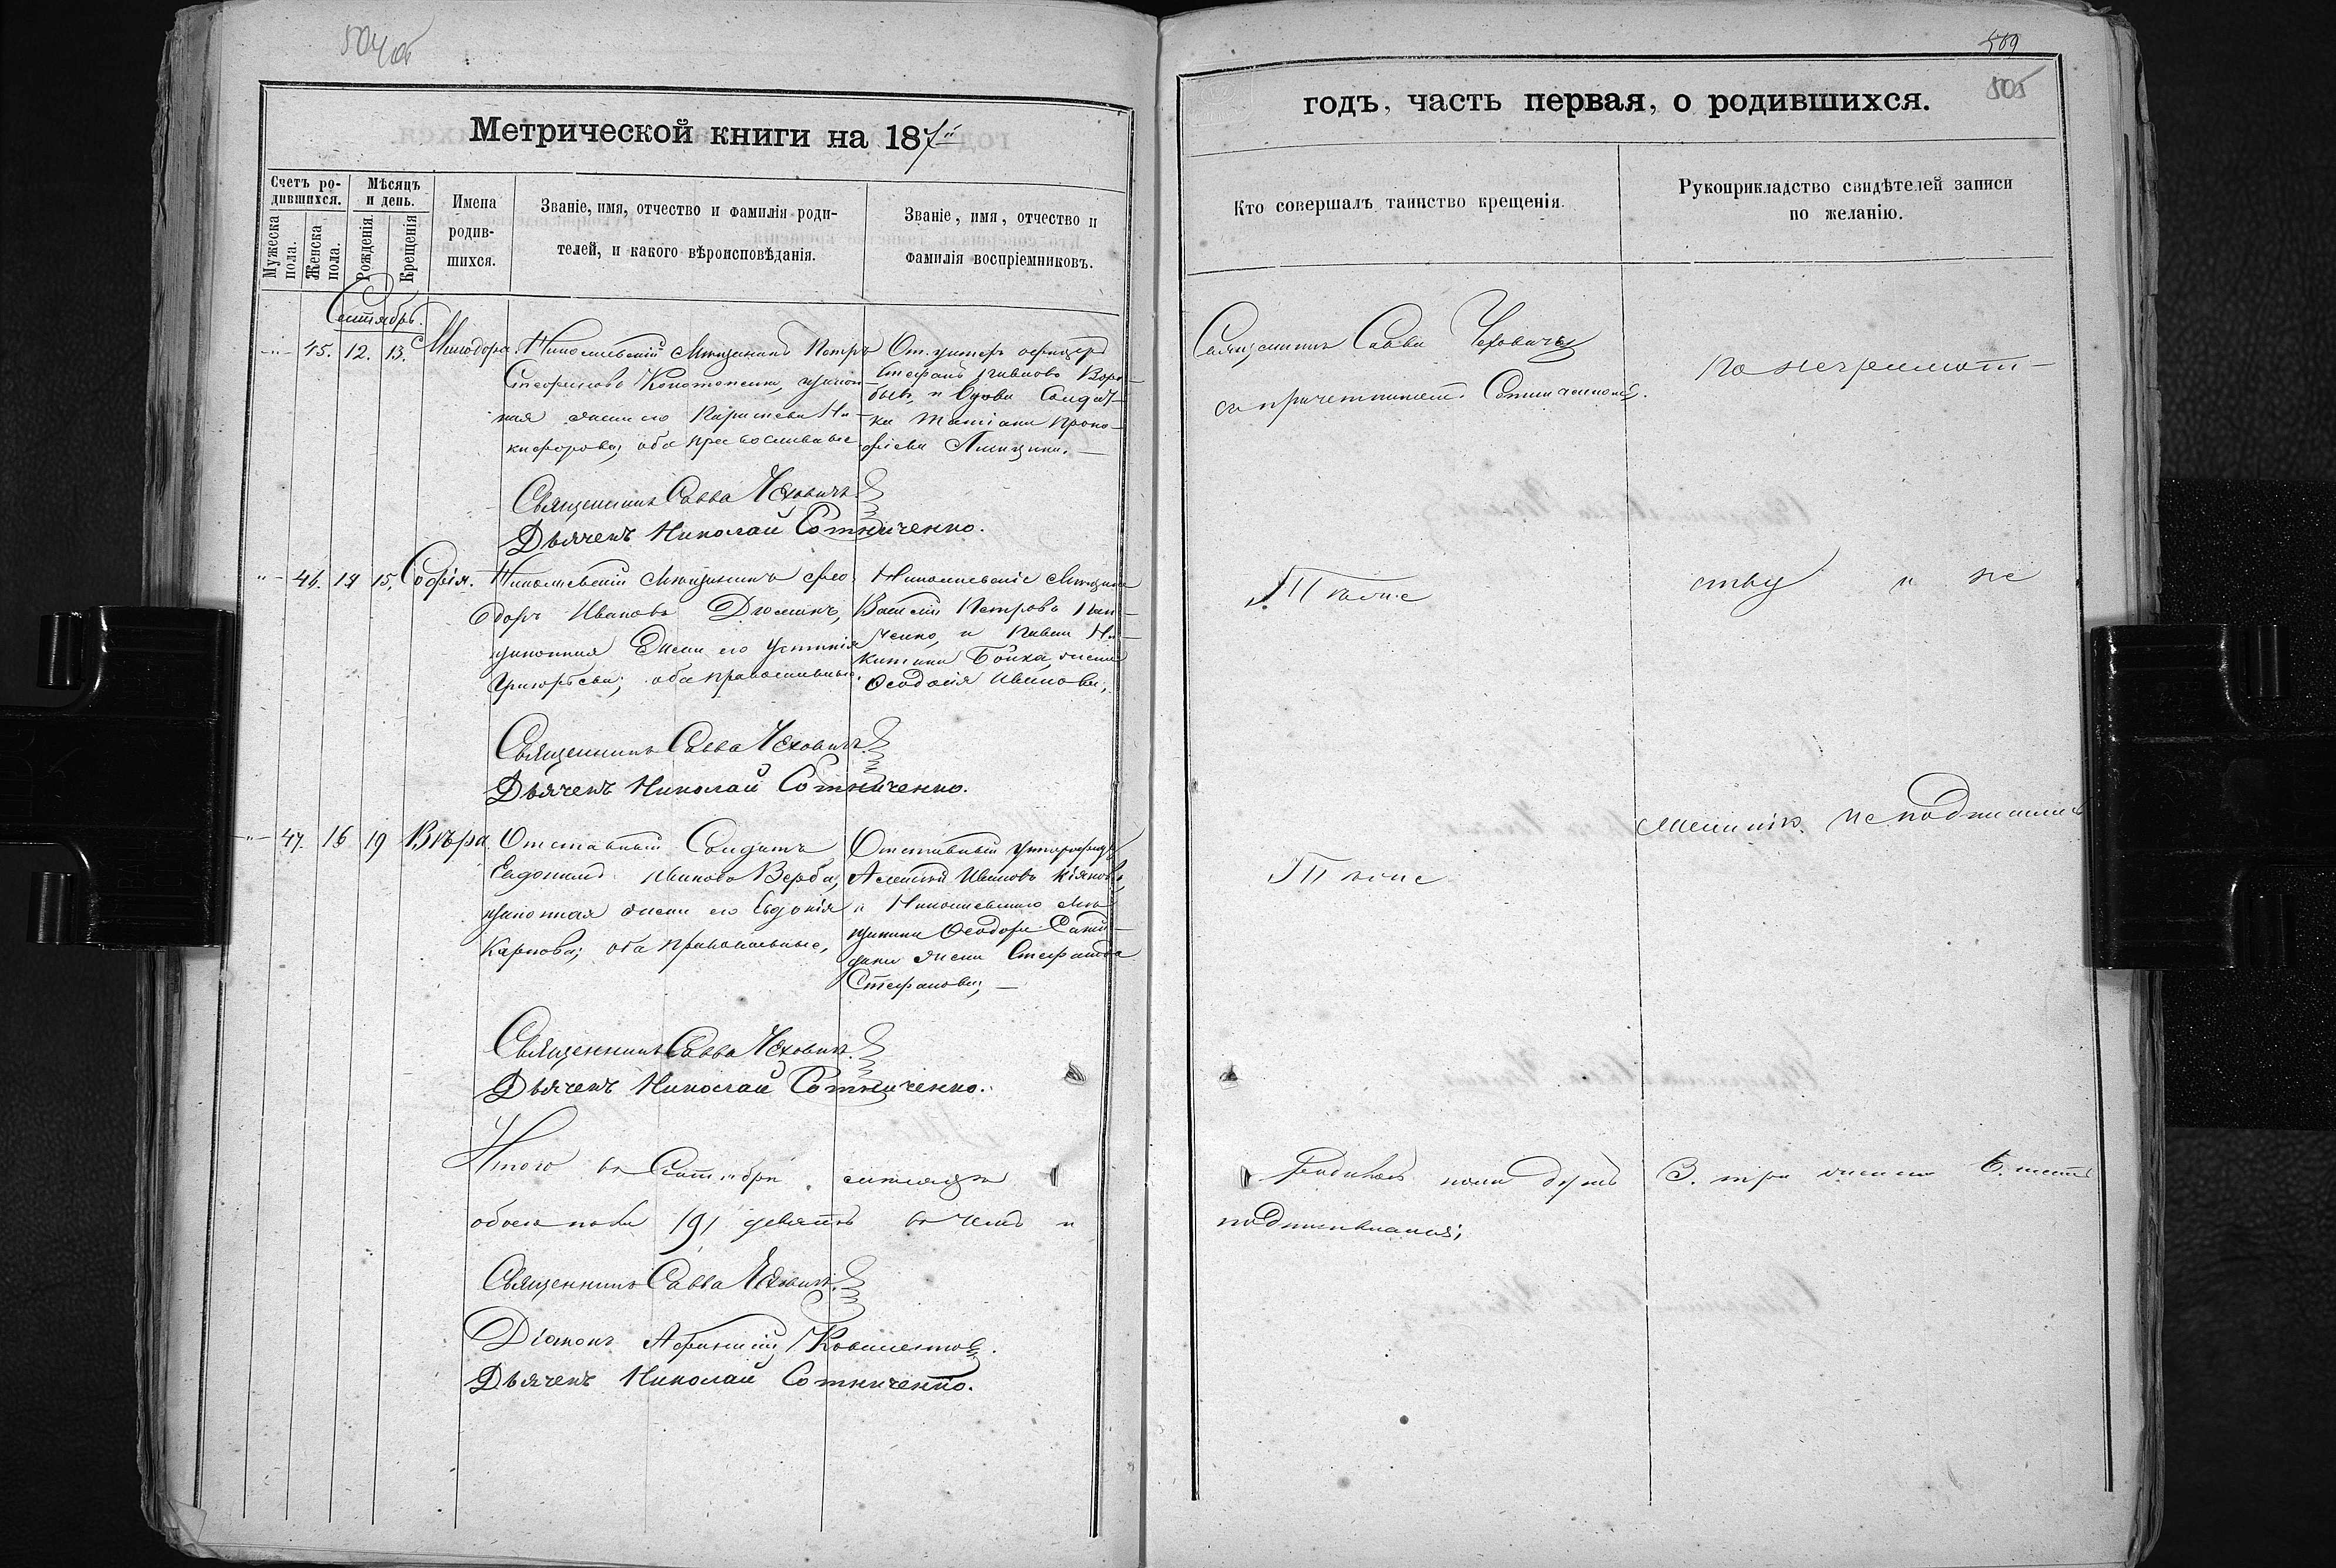 504 об
Метрической книги на 187
Счетъ ро-
дившихся.
Мѣсяцъ
и день.
Мужеска
пола.
Женска
пола.
Рожденія
Крещенія
Имена
родив-
шихся.
Званіе, имя, отчество и фамилія роди-
телей, и какого вѣроисповѣданія.
Званіе, имя, отчество и
фамилія воспріемниковъ.
Сентябрь.
45. 12. 13. Минодора.
Николаевскій мѣщанинъ Петръ
Конотопенко, закон-
ная жена его Ни-
кифорова; оба православные
От. унтеръ офицеръ
Стефанъ Ивановъ
и вдова Солдат-
ка Татіана Проко-
фіева
Священникъ Савва Чеховичъ
Дьячекъ Николай Сотниченко.
46. 14 15. Софія.
Николаевскій мѣщанинъ Фео-
доръ Ивановъ
законная жена его Устинія
Григорьева; оба православные.
Николаевскіе мѣщане
Василій Петровъ
и Ни-
китина Бойка, жена
Ѳеодосія Иванова;
Священникъ Савва Чеховичъ
Дьячекъ Николай Сотниченко.
47. 16 19 Вѣра
Отставный Солдатъ
Евдокимъ Ивановъ Верба,
законная жена его Евдокія
Карпова; оба православные,
Отставный унтерофиц.
Алексѣй Ивановъ
и Николаевского мѣ-
щанина Ѳеодора
жена Стефанида
Стефанова; —
Священникъ Савва Чеховичъ
Дьячекъ Николай Сотниченко.
Итого въ Сентябрѣ мѣсяцѣ
обоего пола /9/ девять въ чемъ и
Священникъ Савва Чеховичъ
Діаконъ Афанасій
Дьячекъ Николай Сотниченко.
509
505
годъ, часть первая, о родившихся.
Кто совершалъ таинство крещенія.
Рукоприкладство свидѣтелей записи
по желанію.
Священникъ Савва Чеховичъ
съ причетникомъ Сотниченкомъ.
По неграмот-
Тотже
ству и не
желанію не подписались
Тотже
Родилось 3. три женска 6. шесть
подписываемся;